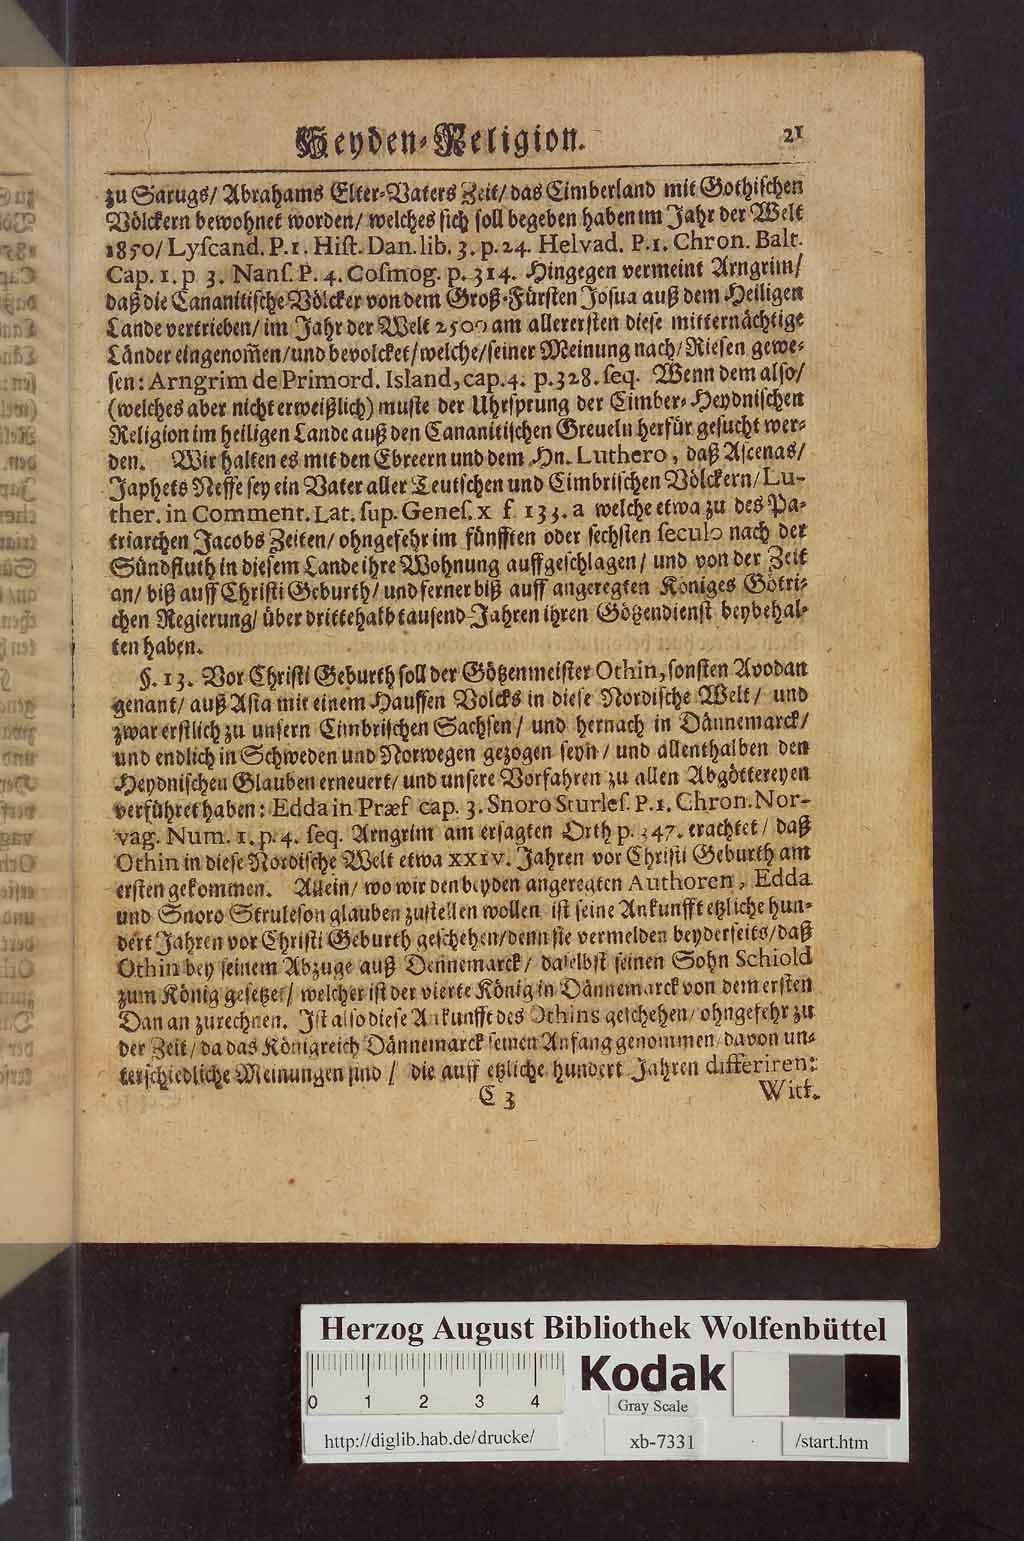 Heyden-Religion. 21
zu Sarugs/ Abrahams Elter-Vaters Zeit/ das Cimberland mit Gothischen
Völckern bewohnet worden/ welches sich soll begeben haben im Jahr der Welt
1850/ Lyscand. P. 1. Hist. Dan. lib. 3. p. 24. Helvad. P. 1. Chron. Balt.
Cap. 1. p 3. Nans. P. 4. Cosmog. p. 314. Hingegen vermeint Arngrim/
daß die Cananitische Völcker von dem Groß-Fürsten Josua auß dem Heiligen
Lande vertrieben/ im Jahr der Welt 2500 am allerersten diese mitternächtige
Länder eingenom̃en/ und bevolcket/ welche/ seiner Meinung nach/ Riesen gewe-
sen: Arngrim de Primord. Island, cap. 4. p. 328. seq. Wenn dem also/
(welches aber nicht erweißlich) muste der Uhrsprung der Cimber-Heydnischen
Religion im heiligen Lande auß den Cananitischen Greueln herfür gesucht wer-
den. Wir halten es mit den Ebreern und dem Hn. Luthero, daß Ascenas/
Japhets Neffe sey ein Vater aller Teutschen und Cimbrischen Völckern/ Lu-
ther. in Comment. Lat. sup. Genes. x f. 133. a welche etwa zu des Pa-
triarchen Jacobs Zeiten/ ohngefehr im fünfften oder sechsten seculo nach der
Sündfluth in diesem Lande ihre Wohnung auffgeschlagen/ und von der Zeit
an/ biß auff Christi Geburth/ und ferner biß auff angeregten Königes Götri-
chen Regierung/ über drittehalb tausend Jahren ihren Götzendienst beybehal-
ten haben.
§. 13. Vor Christi Geburth soll der Götzenmeister Othin, sonsten Avodan
genant/ auß Asia mit einem Hauffen Volcks in diese Nordische Welt/ und
zwar erstlich zu unsern Cimbrischen Sachsen/ und hernach in Dännemarck/
und endlich in Schweden und Norwegen gezogen seyn/ und allenthalben den
Heydnischen Glauben erneuert/ und unsere Vorfahren zu allen Abgöttereyen
verführet haben: Edda in Præf cap. 3. Snoro Sturles. P. 1. Chron. Nor-
vag. Num. 1. p. 4. seq. Arngrim am ersagten Orth p. 347. erachtet/ daß
Othin in diese Nordische Welt etwa XXIV. Jahren vor Christi Geburth am
ersten gekommen. Allein/ wo wir den beyden angeregten Authoren, Edda
und Snoro Struleson glauben zustellen wollen, ist seine Ankunfft etzliche hun-
dert Jahren vor Christi Geburth geschehen/ denn sie vermelden beyderseits/ daß
Othin bey seinem Abzuge auß Dennemarck/ daselbst seinen Sohn Schiold
zum König gesetzet/ welcher ist der vierte König in Dännemarck von dem ersten
Dan an zurechnen. Ist also diese Ankunfft des Othins geschehen/ ohngefehr zu
der Zeit/ da das Königreich Dännemarck seinen Anfang genommen/ davon un-
terschiedliche Meinungen sind / die auff etzliche hundert Jahren differiren:
C 3 Witf.
Herzog August Bibliothek Wolfenbüttel
0 1 2 3 4
Kodak
Gray Scale
http://diglib.hab.de/drucke/ xb-7331 /start.htm